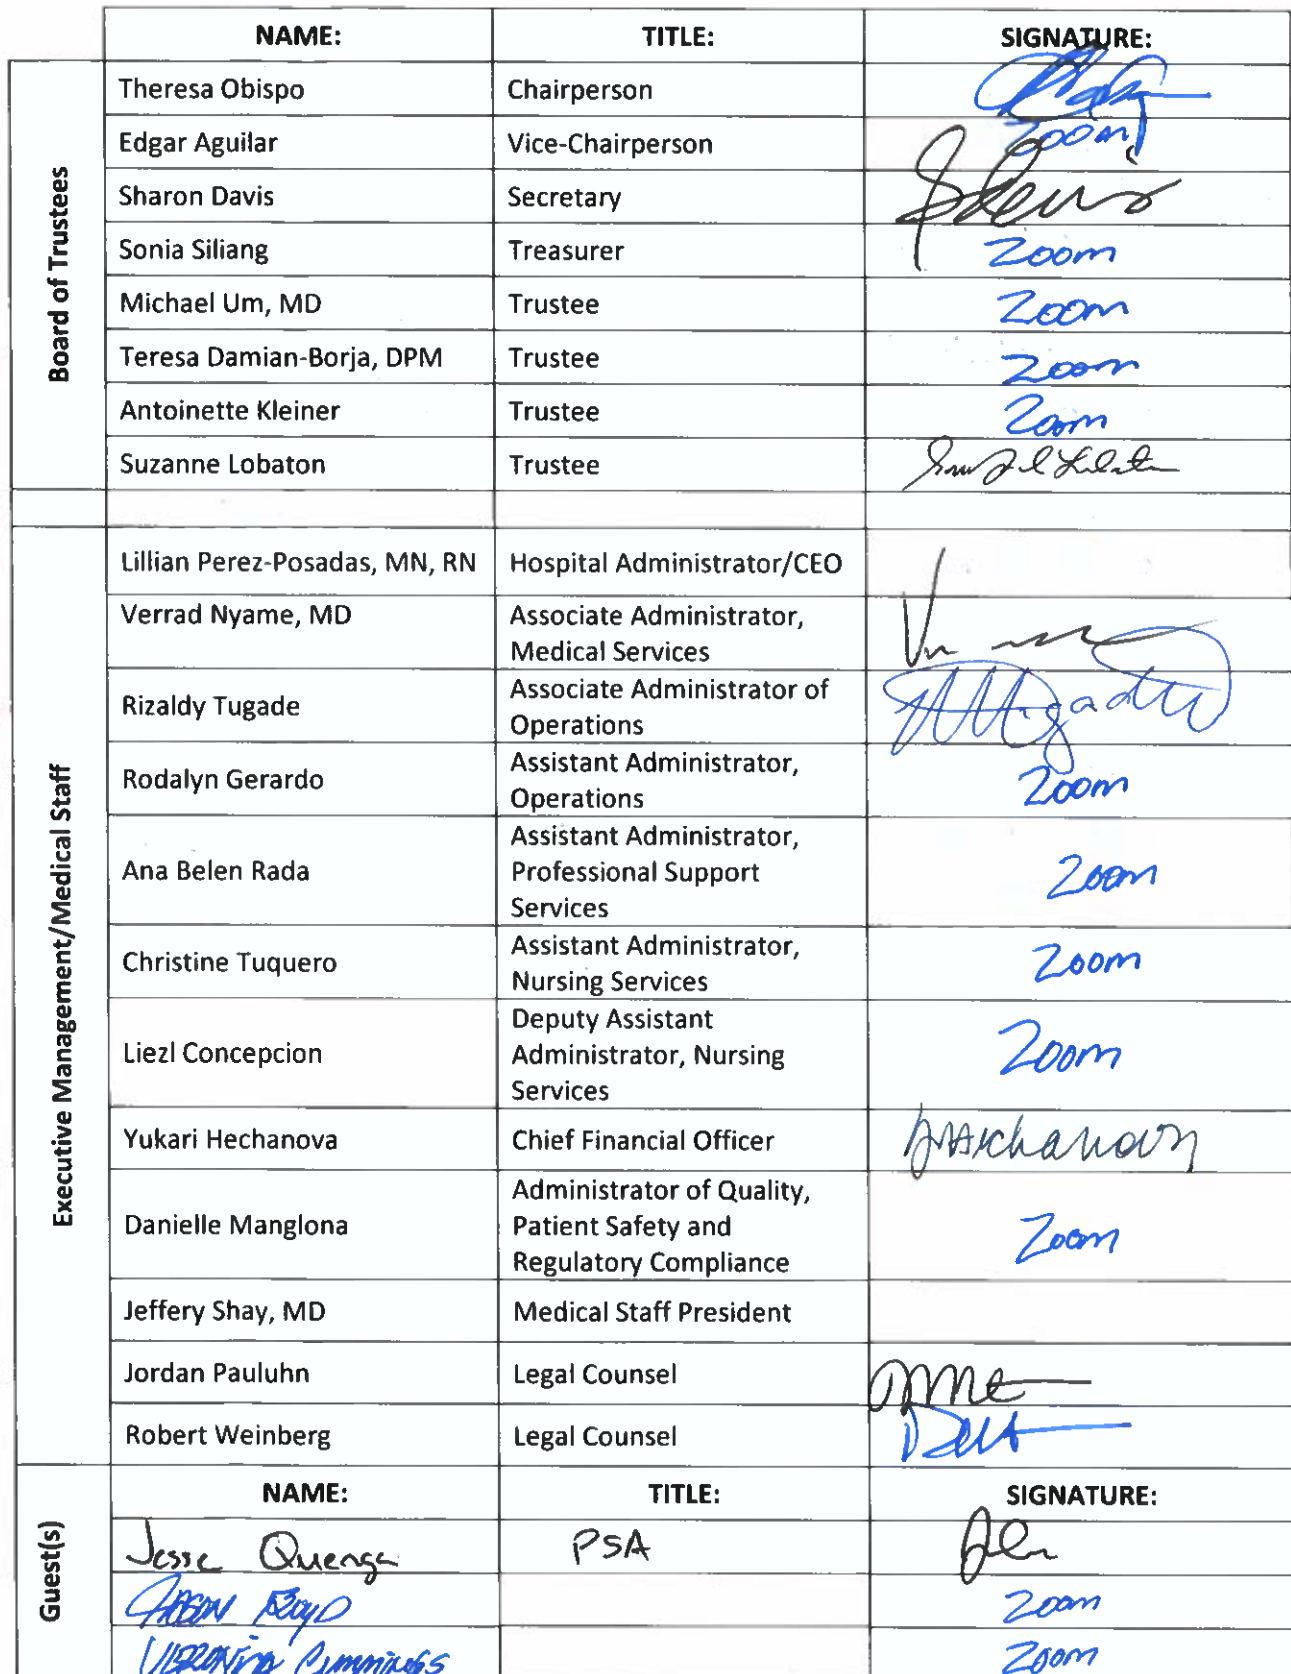 NAME: TITLE: SIGNATURE:
Board of Trustees
Theresa Obispo Chairperson
Edgar Aguilar Vice-Chairperson Zoom
Sharon Davis Secretary
Sonia Siliang Treasurer Zoom
Michael Um, MD Trustee Zoom
Teresa Damian-Borja, DPM Trustee Zoom
Antoinette Kleiner Trustee Zoom
Suzanne Lobaton Trustee
Executive Management/Medical Staff
Lillian Perez-Posadas, MN, RN Hospital Administrator/CEO
Verrad Nyame, MD Associate Administrator,
Medical Services
Rizaldy Tugade Associate Administrator of
Operations
Rodalyn Gerardo Assistant Administrator, Zoom
Operations
Assistant Administrator,
Ana Belen Rada Professional Support Zoom
Services
Christine Tuquero Assistant Administrator, Zoom
Nursing Services
Deputy Assistant
Liezl Concepcion Administrator, Nursing Zoom
Services
Yukari Hechanova Chief Financial Officer
Administrator of Quality,
Danielle Manglona Patient Safety and Zoom
Regulatory Compliance
Jeffery Shay, MD Medical Staff President
Jordan Pauluhn Legal Counsel
Robert Weinberg Legal Counsel
Guest(s)
NAME: TITLE: SIGNATURE:
Jesse Quenga PSA
JASON BOYD Zoom
VERONICA CUMMINGS Zoom